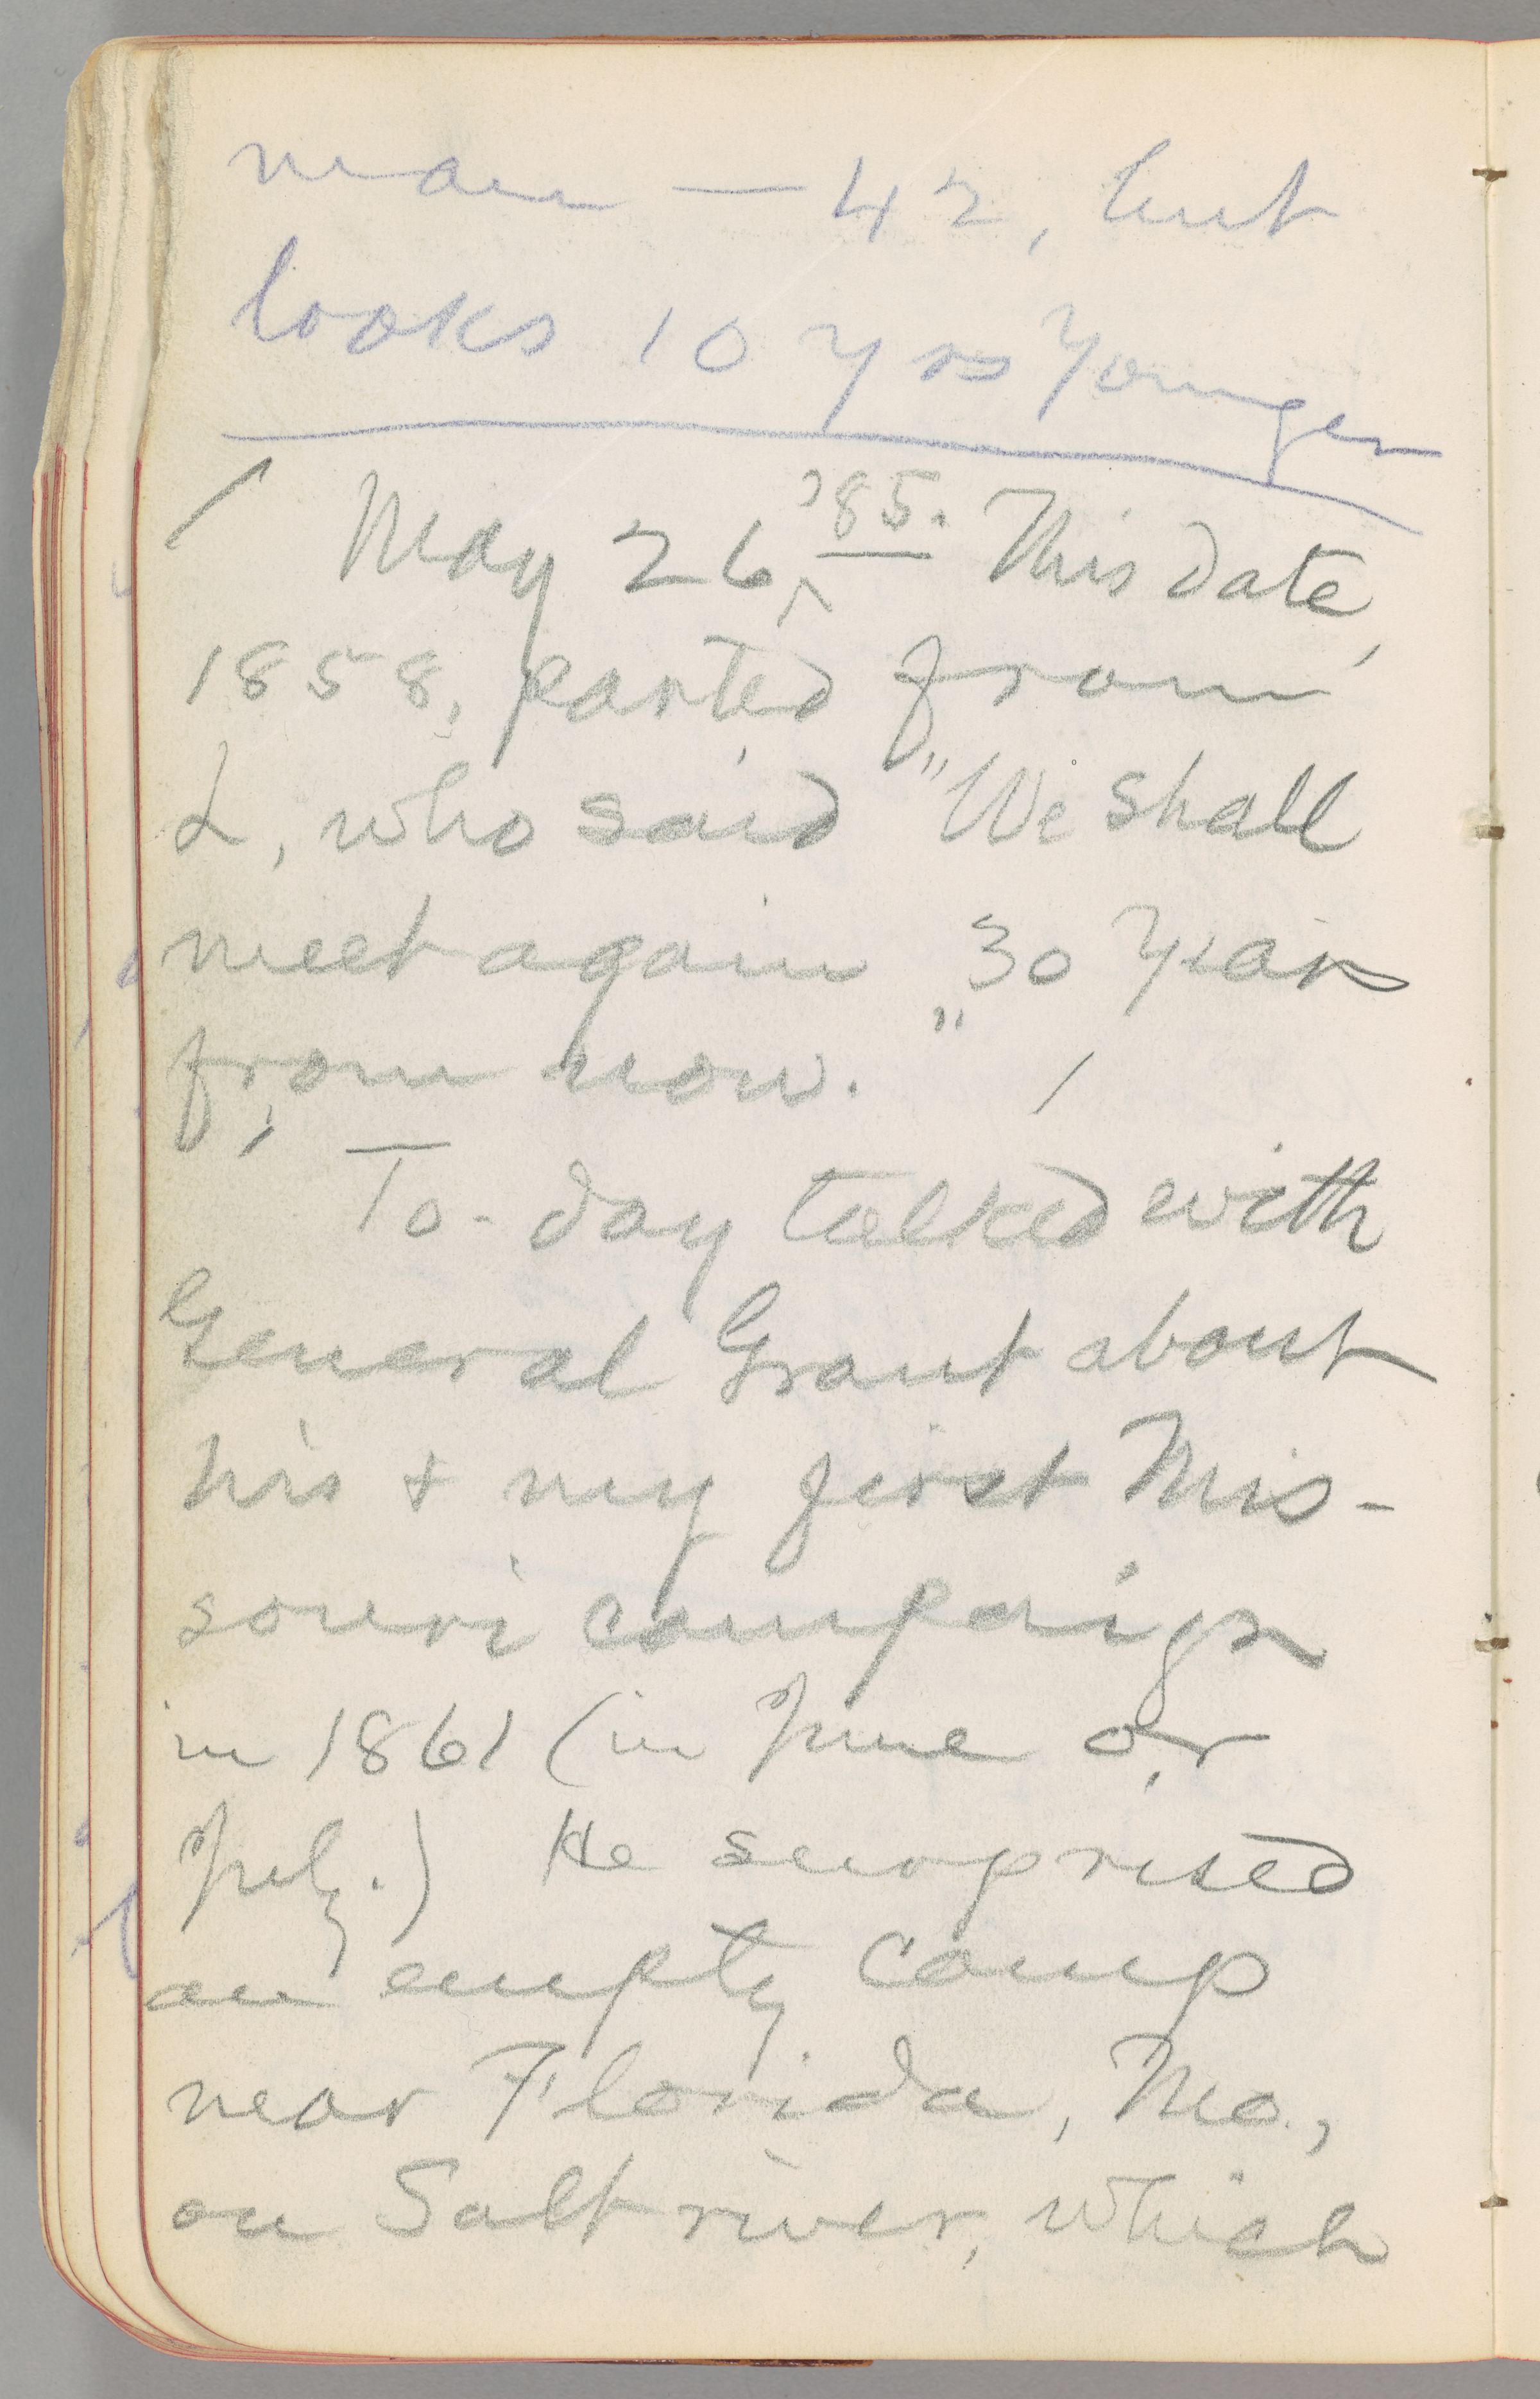 man — 42, but
looks 10 yrs younger
May 26, '85. This date,
1858, parted from
L, who said "We shall
meet again 30 years
from now."
To-day talked with
General Grant about
his & my first Mis-
souri campaign
in 1861 (in June or
July.) He surprised
an empty camp
near Florida, Mo.,
on Salt river, which